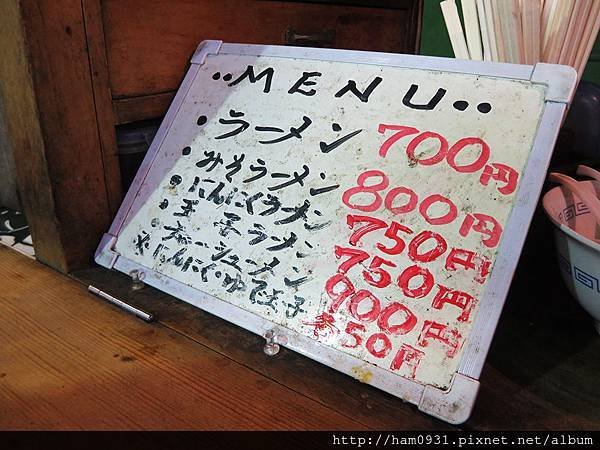 ••MENU••
•ラーメン 700円
•みそラーメン 800円
•にんにくラーメン 750円
•玉子ラーメン 750円
•チャーシューメン 900円
※にんにく・ゆで玉子 各50円
http://ham0931.pixnet.net/album